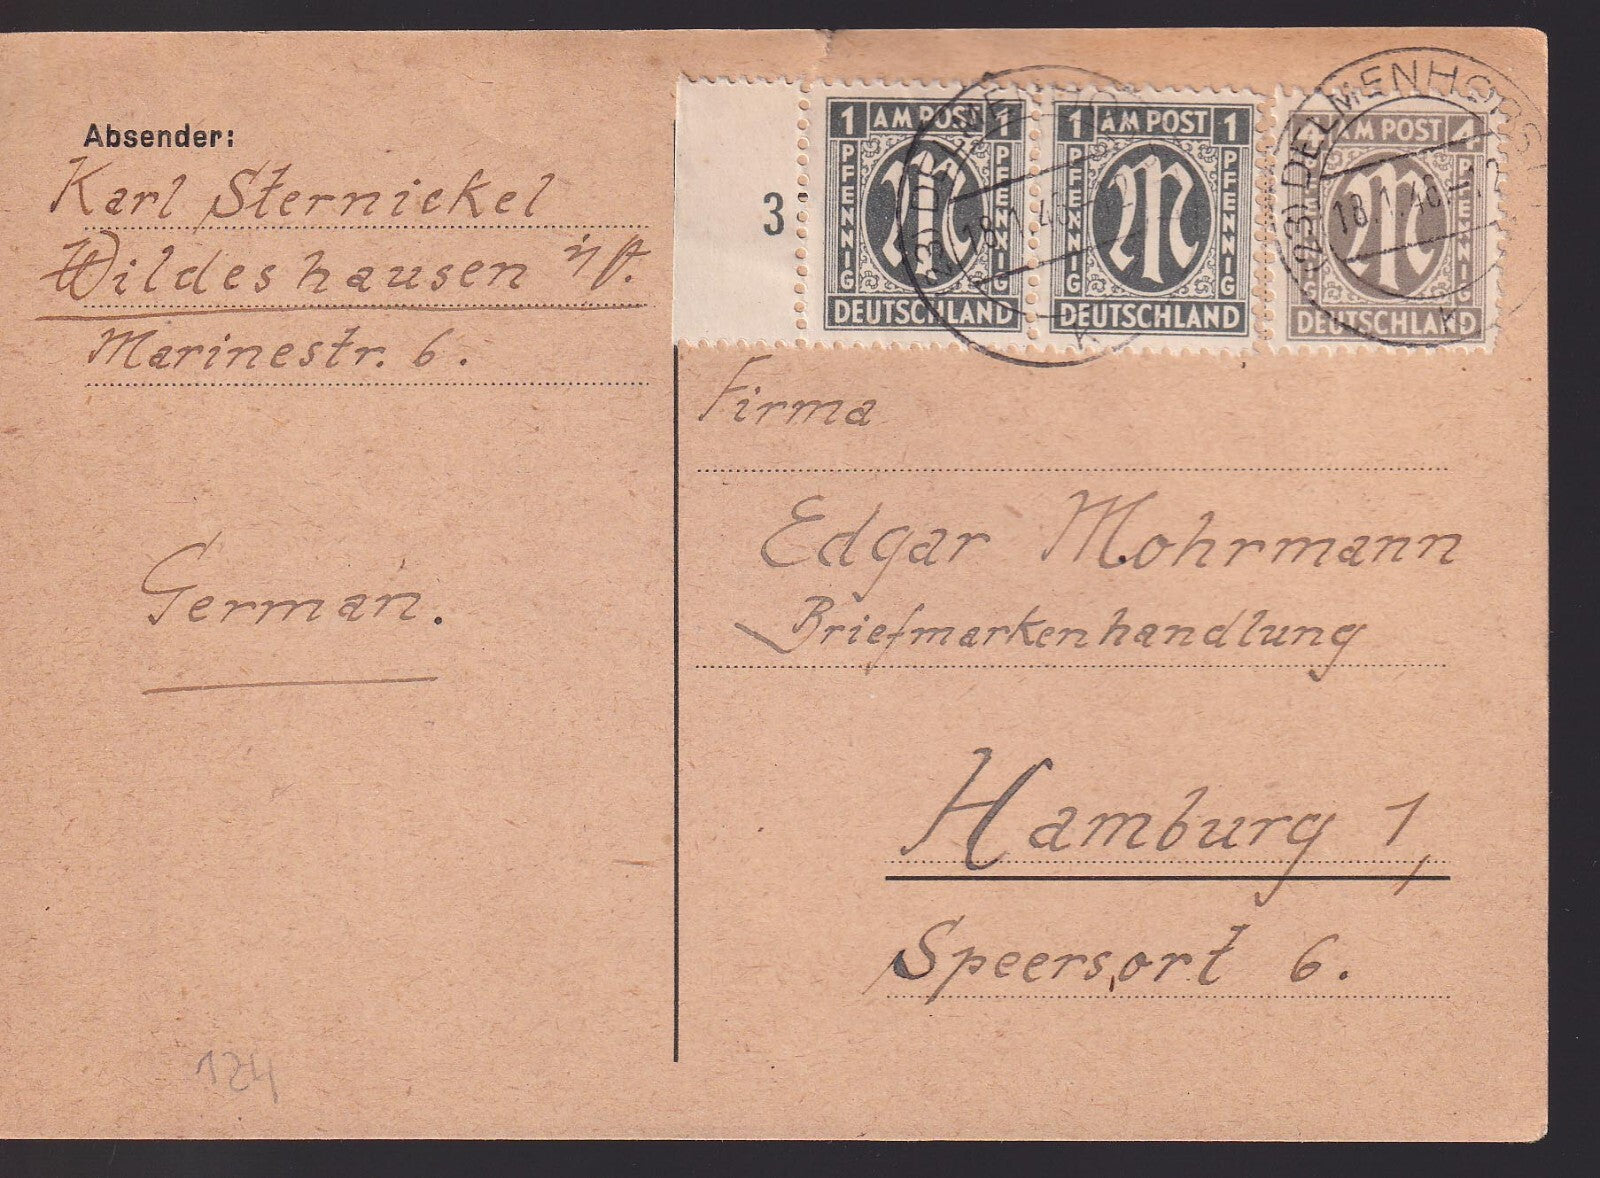 Absender:
Karl Sternickel
Wildeshausen i/
Marinestr. 6.
German.
124
3
1 AM POST 1
PFENNIG
PFENNIG
DEUTSCHLAND
1 AM POST 1
PFENNIG
PFENNIG
DEUTSCHLAND
4 AM POST 4
PFENNIG
PFENNIG
DEUTSCHLAND
(23) DELMENHORST
18.1.46.-12
k
(23) DELMENHORST
18.1.46.-12
k
Firma
Edgar Mohrmann
Briefmarkenhandlung
Hamburg 1,
Speersort 6.